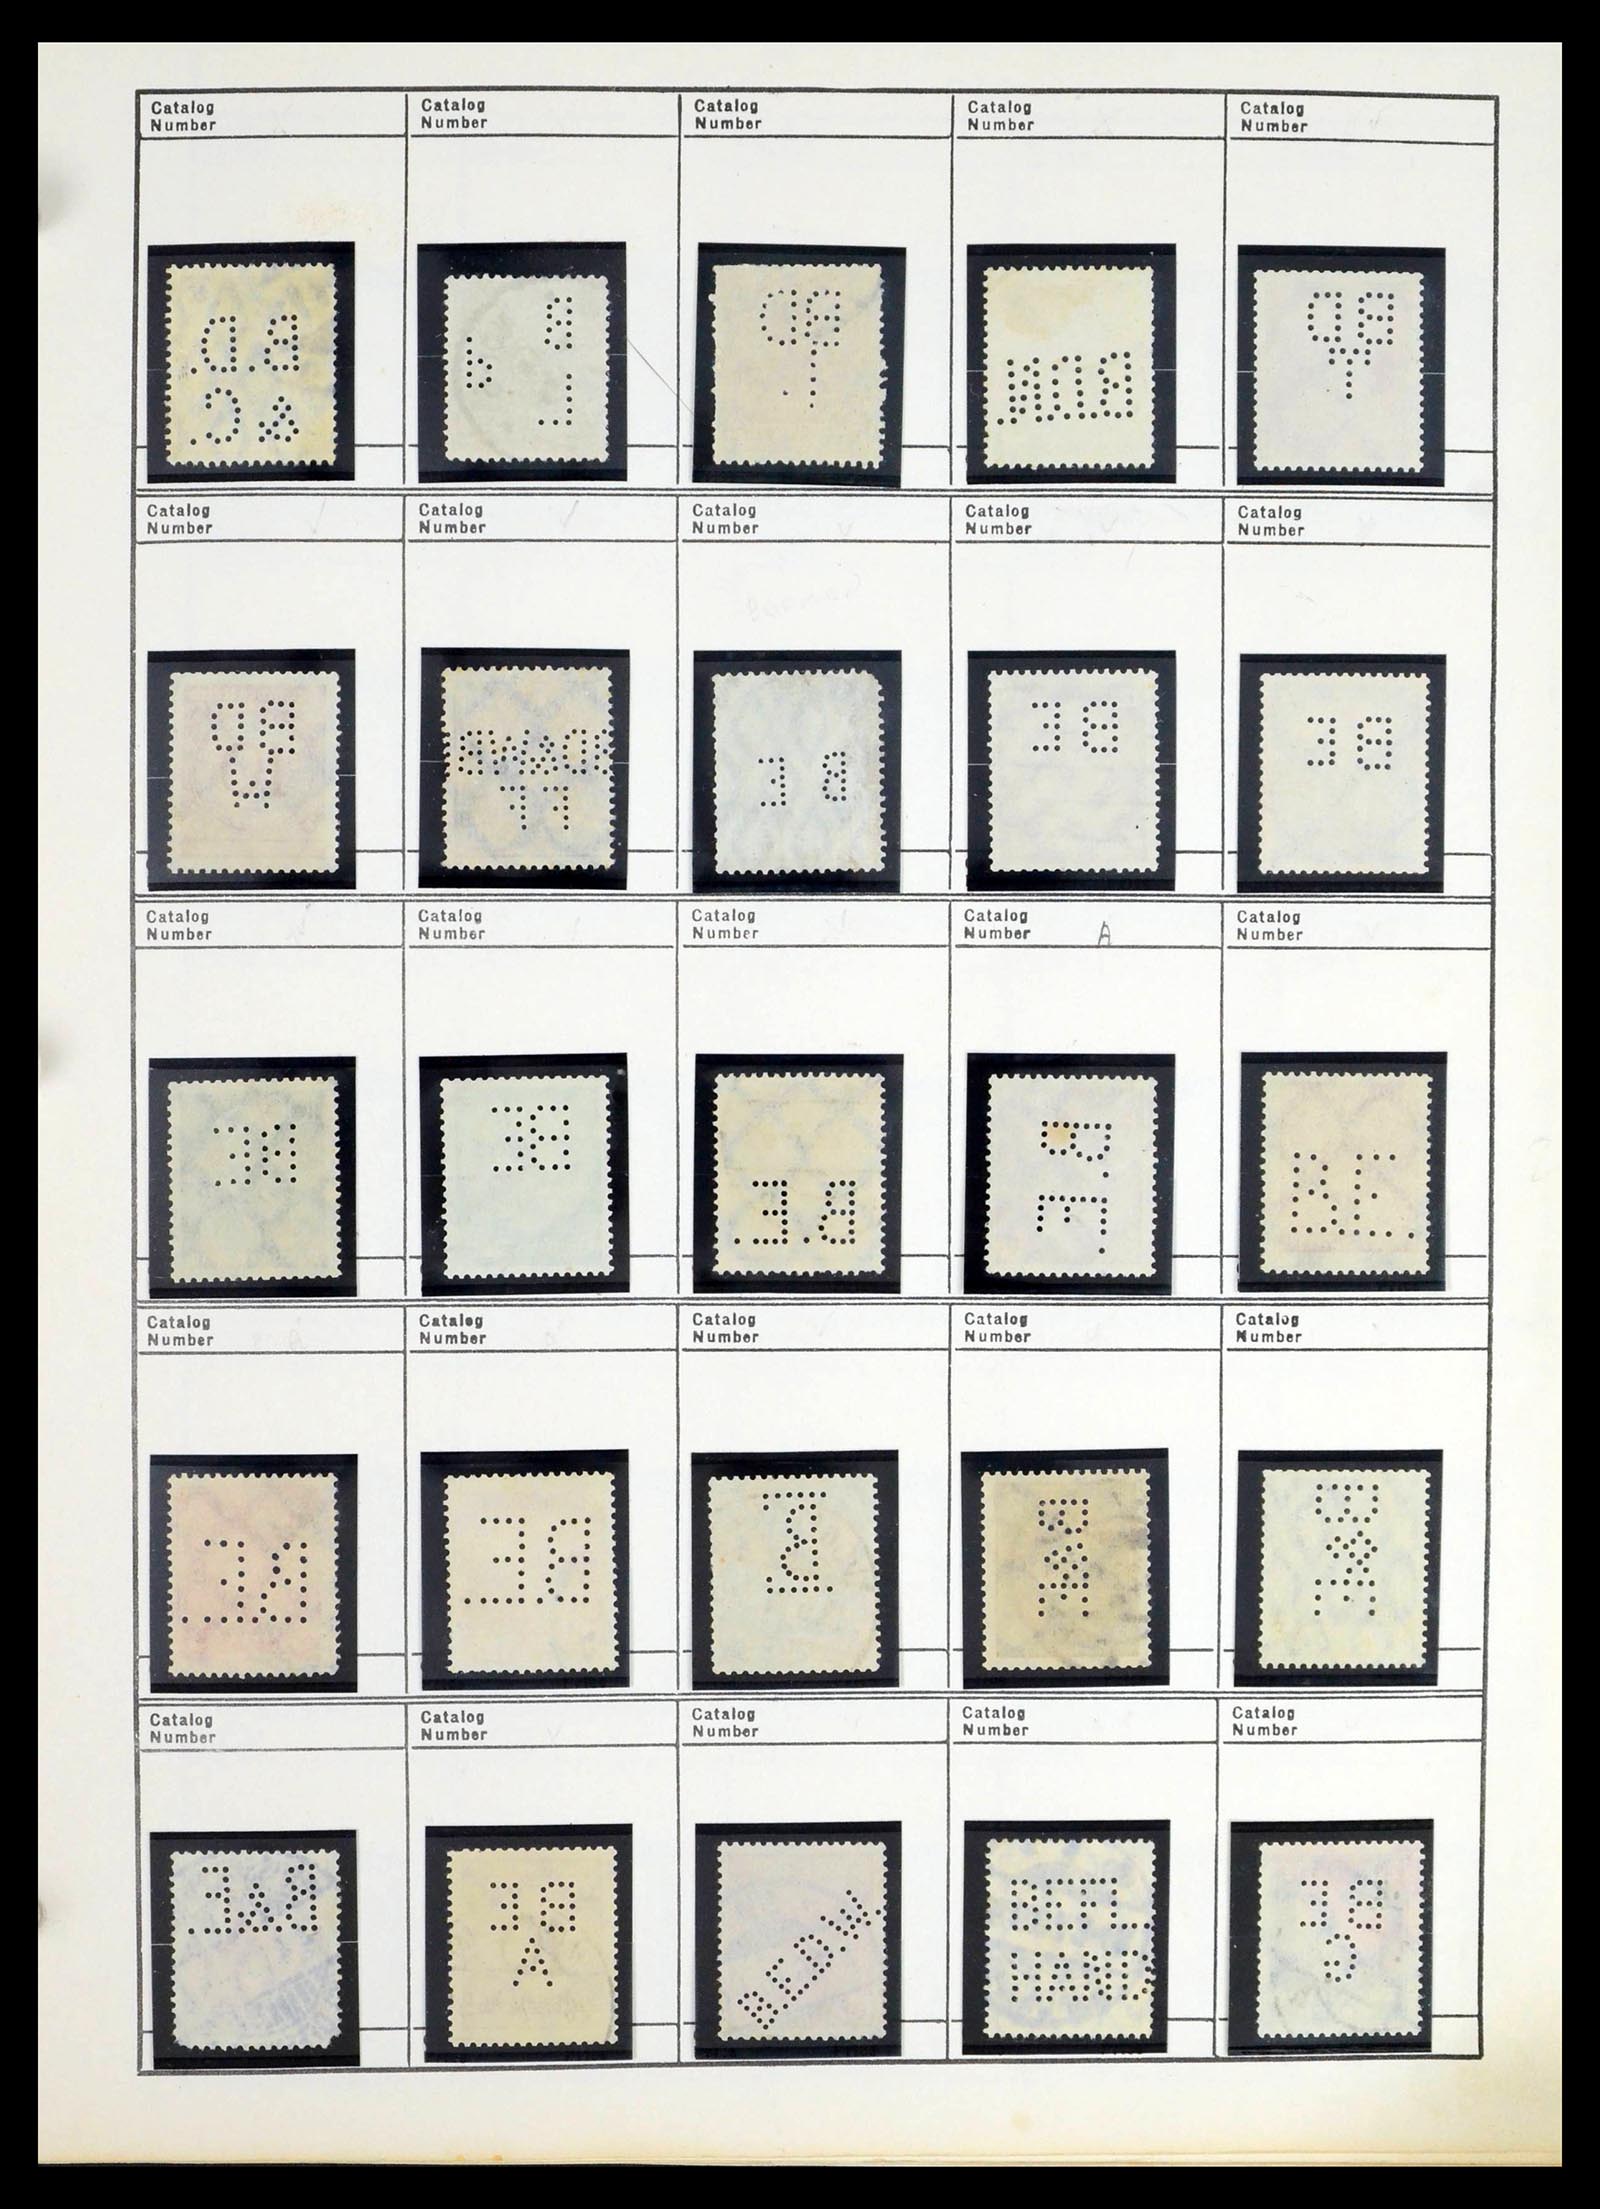 Catalog Number
Catalog Number
Catalog Number
Catalog Number
Catalog Number
B.D.
&C.
B
P
L
BD
T.
BD
Y
Catalog Number
Catalog Number
Catalog Number
Catalog Number
Catalog Number
BD
W
BE
BE
BE
Catalog Number
Catalog Number
Catalog Number
Catalog Number A
Catalog Number
BE
BE
B.E.
B.
E.
B.E.
Catalog Number
Catalog Number
Catalog Number
Catalog Number
Catalog Number
B.E.
BE
B
&
E
B
&
E
Catalog Number
Catalog Number
Catalog Number
Catalog Number
Catalog Number
B&E.
BE
A
B.E.D.W.
BEFL.
HAND.
BE
C